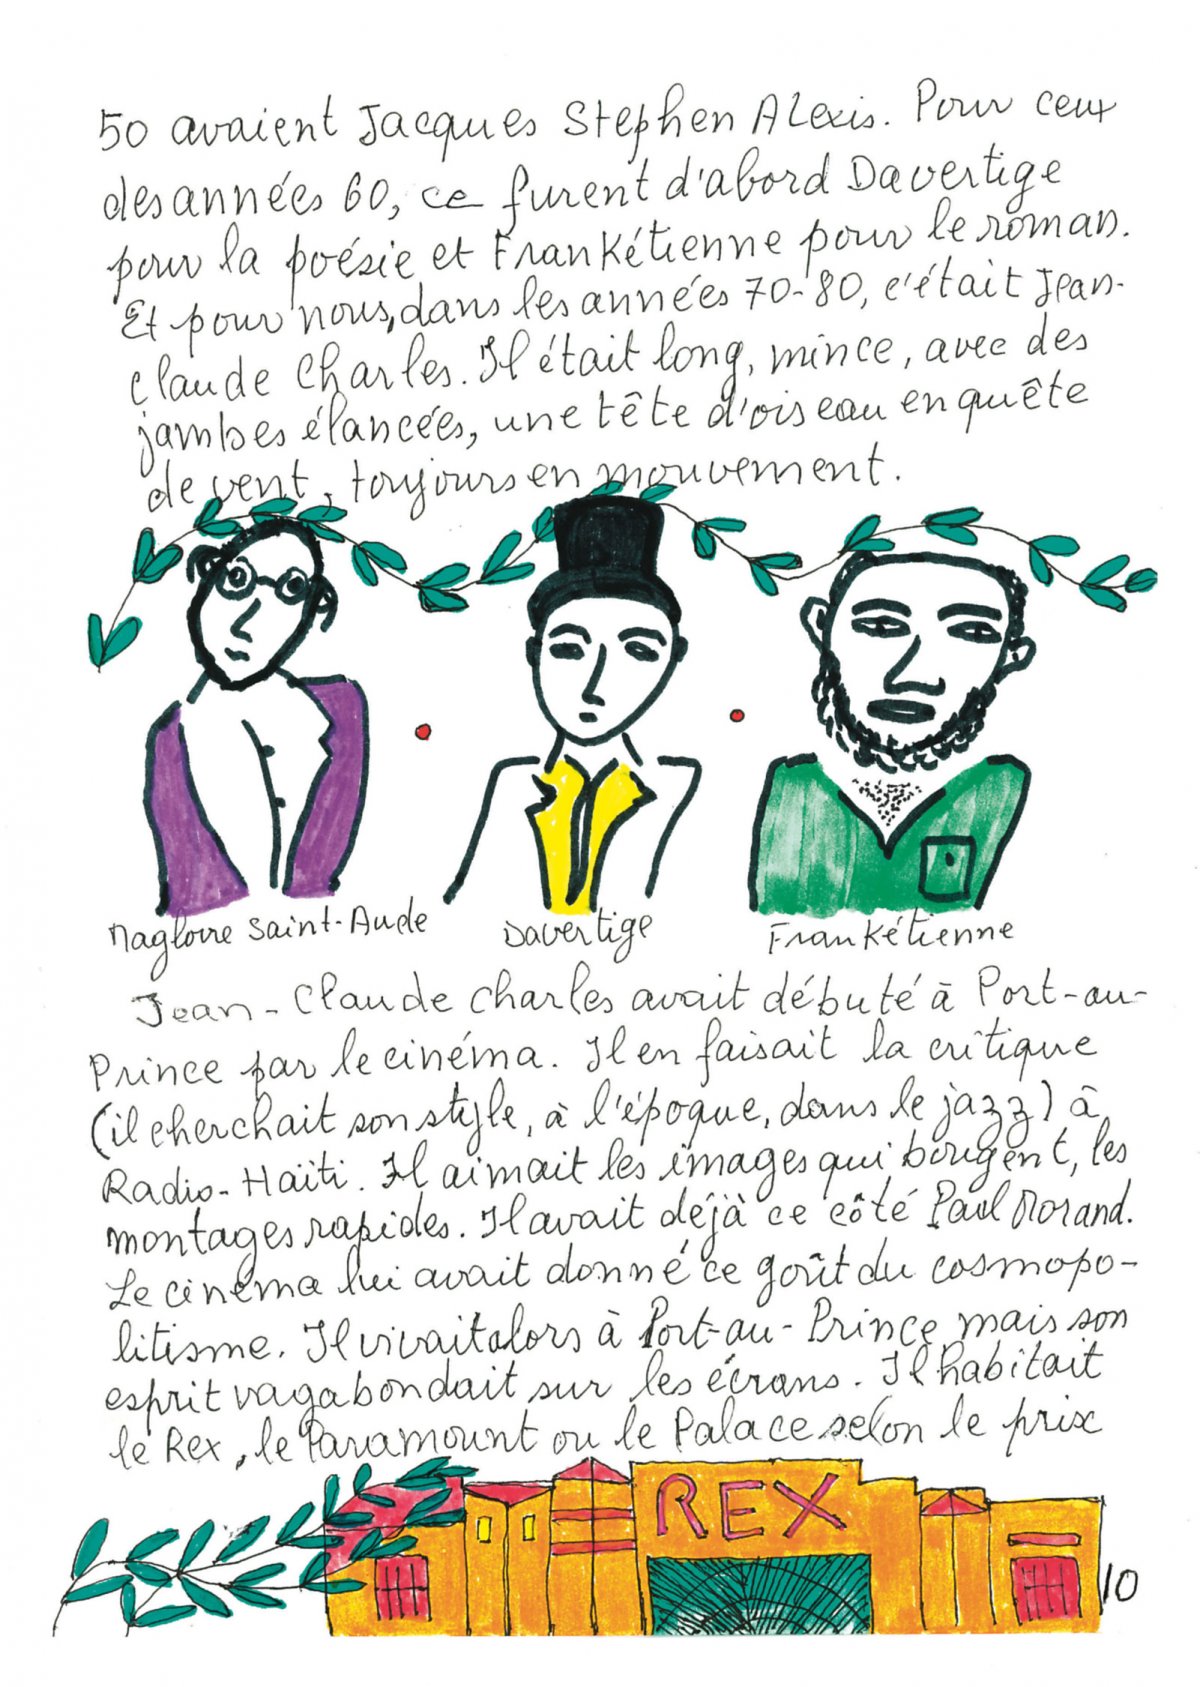 50 avaient Jacques Stephen Alexis. Pour ceux
des années 60, ce furent d'abord Davertige
pour la poésie et Frankétienne pour le roman.
Et pour nous, dans les années 70-80, c'était Jean-
Claude Charles. Il était long, mince, avec des
jambes élancées, une tête d'oiseau en quête
de vent, toujours en mouvement.
Magloire Saint-Aude
Davertige
Frankétienne
Jean-Claude Charles avait débuté à Port-au-
Prince par le cinéma. Il en faisait la critique
(il cherchait son style, à l'époque, dans le jazz) à
Radio-Haïti. Il aimait les images qui bougent, les
montages rapides. Il avait déjà ce côté Paul Morand.
Le cinéma lui avait donné ce goût du cosmopo-
litisme. Il vivait alors à Port-au-Prince mais son
esprit vagabondait sur les écrans. Il habitait
le Rex, le Paramount ou le Palace selon le prix
REX
10